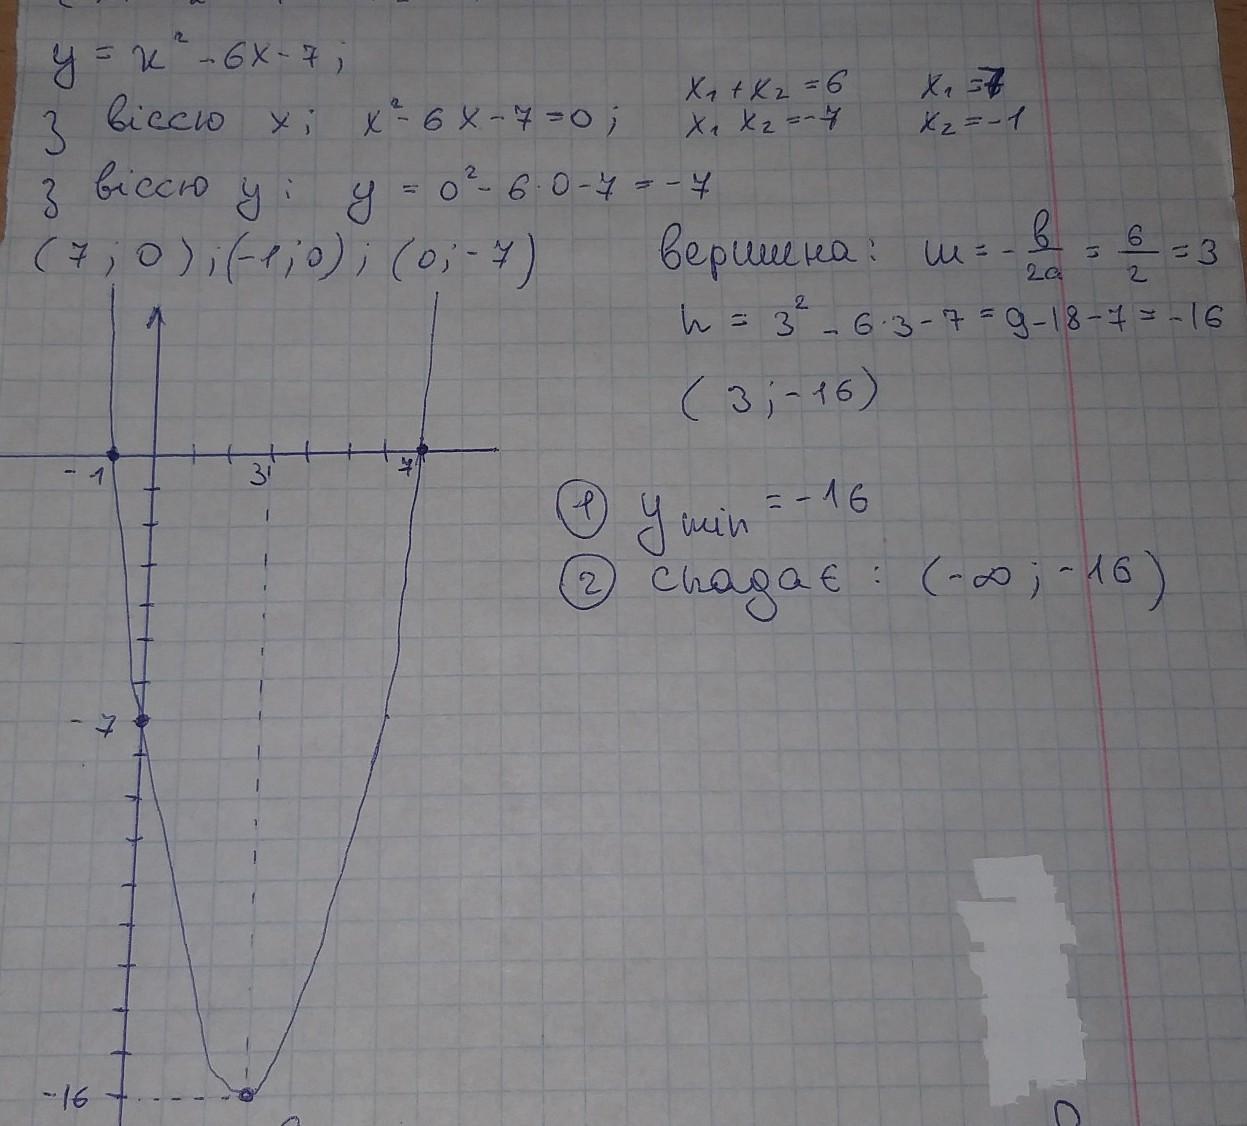 y = x² - 6x - 7 ;
З віссю x; x² - 6x - 7 = 0 ; x₁ + x₂ = 6 x₁ = 7
x₁ x₂ = -7 x₂ = -1
З віссю y: y = 0² - 6·0 - 7 = -7
(7 ; 0) ; (-1 ; 0) ; (0 ; -7)
вершина: m = -b/2a = 6/2 = 3
n = 3² - 6·3 - 7 = 9 - 18 - 7 = -16
(3 ; -16)
-1 3 7
① y min = -16
② спадає : (-∞ ; -16)
-7
-16